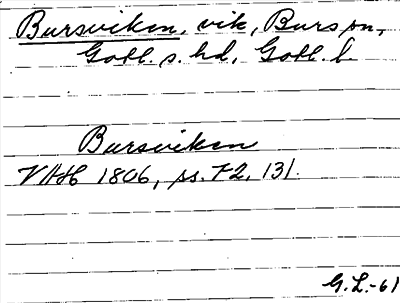 Bursviken, vik, Burs sn,
Gotl. s. hd, Gotl. l.
Bursviken
VAH 1806, ss. 72, 131.
G.L.-61